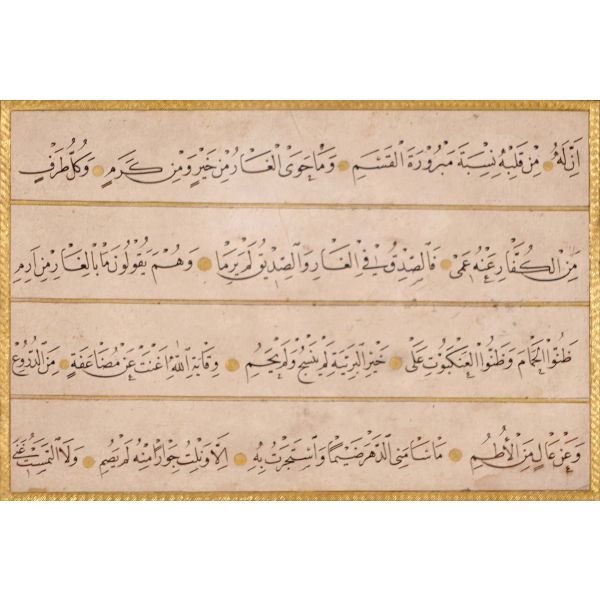 اَنَّ لَهُ ۝ مِنْ قَلْبِهٖ نِسْبَةً مَبْرُورَةَ الْقَسَمِ ۝ وَمَا حَوَى الْغَارُ مِنْ خَيْرٍ وَمِنْ كَرَمٍ ۝ وَكُلُّ طَرْفٍ
مِنَ الْكُفَّارِ عَنْهُ عَمِى ۝ فَالصِّدْقُ فِى الْغَارِ وَالصِّدِّيقُ لَمْ يَرِمَا ۝ وَهُمْ يَقُولُونَ مَا بِالْغَارِ مِنْ اَرِمِ
ظَنُّوا الْحَمَامَ وَظَنُّوا الْعَنْكَبُوتَ عَلٰى ۝ خَيْرِ الْبَرِيَّةِ لَمْ تَنْسُجْ وَلَمْ تَحُمِ ۝ وِقَايَةُ اللّٰهِ اَغْنَتْ عَنْ مُضَاعَفَةٍ ۝ مِنَ الدُّرُوعِ
وَعَنْ عَالٍ مِنَ الْاُطُمِ ۝ مَا سَامَنِى الدَّهْرُ ضَيْمًا وَاسْتَجَرْتُ بِهٖ ۝ اِلَّا وَنِلْتُ جِوَارًا مِنْهُ لَمْ يُضَمِ ۝ وَلَا الْتَمَسْتُ غِنَى